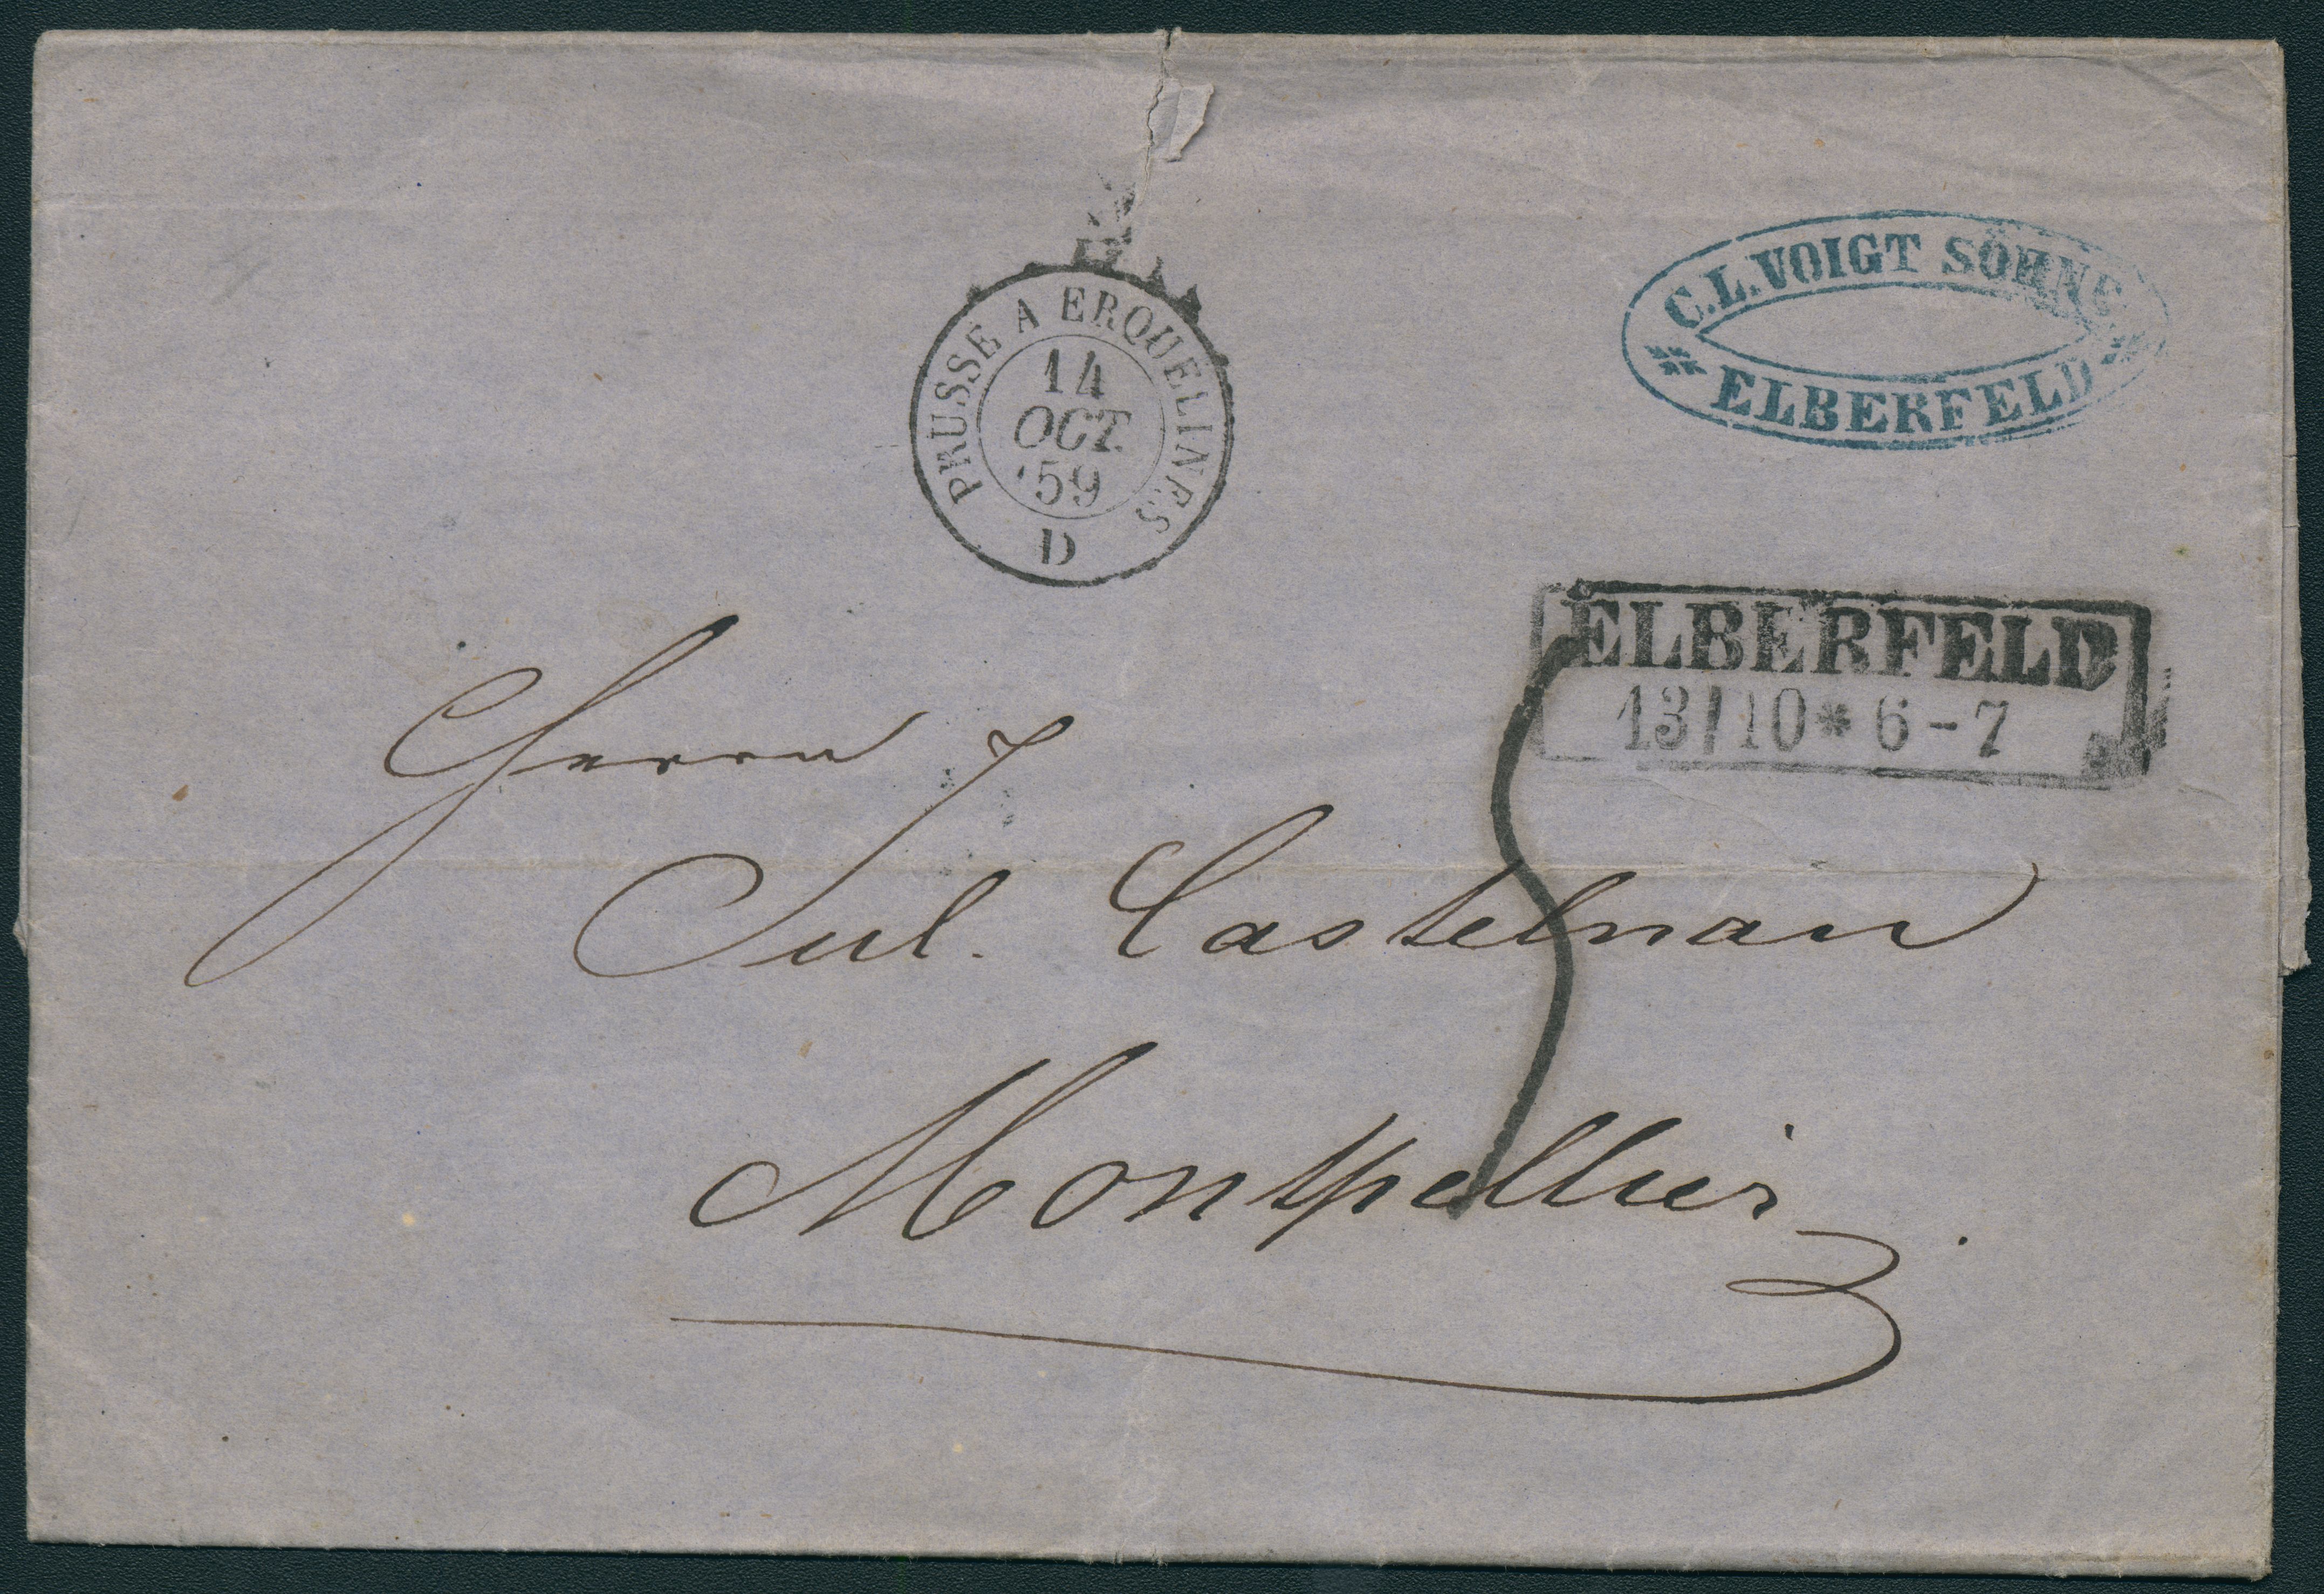 C.L. VOIGT SÖHNE
ELBERFELD
PRUSSE A ERQUELINES
14
OCT.
59
D
ELBERFELD
13/10 * 6-7
Herrn
Jul. Castelnau
Montpellier